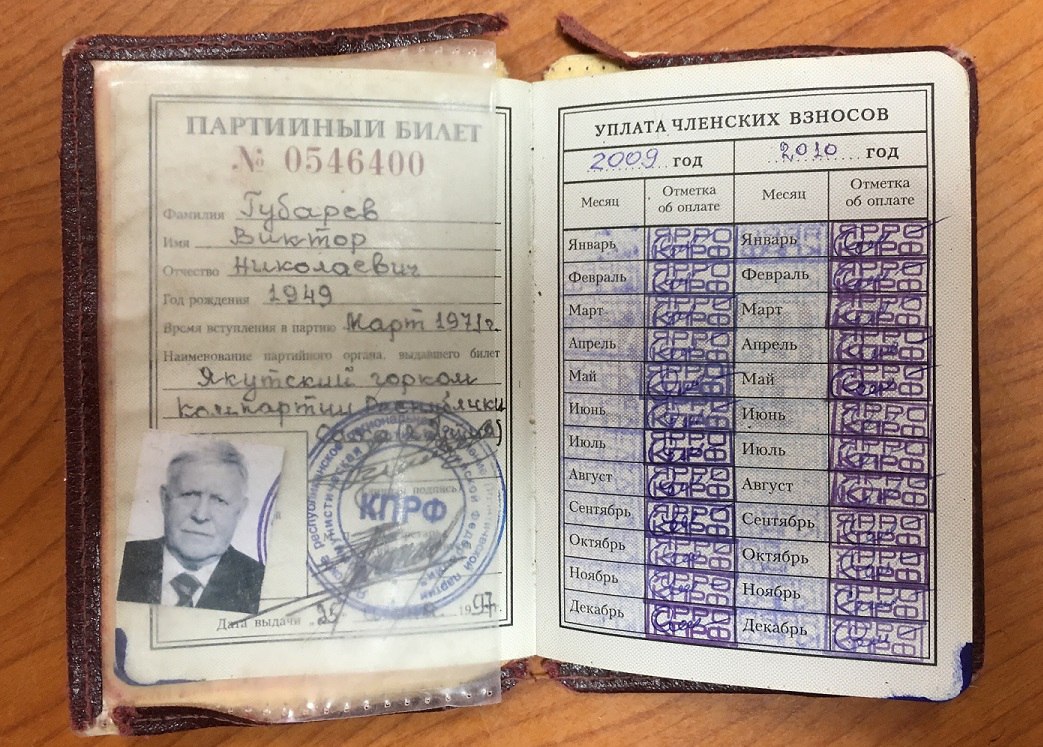 ПАРТИЙНЫЙ БИЛЕТ
№ 0546400
Фамилия Губарев
Имя Виктор
Отчество Николаевич
Год рождения 1949
Время вступления в партию Март 1971 г.
Наименование партийного органа, выдавшего билет
Якутский горком
компартии Республики
КПРФ
подпись
Дата выдачи 25 1997
УПЛАТА ЧЛЕНСКИХ ВЗНОСОВ
2009 год 2010 год
Месяц Отметка об оплате Месяц Отметка об оплате
Январь ЯРРО КПРФ Январь ЯРРО КПРФ
Февраль ЯРРО КПРФ Февраль ЯРРО КПРФ
Март ЯРРО КПРФ Март ЯРРО КПРФ
Апрель ЯРРО КПРФ Апрель ЯРРО КПРФ
Май ЯРРО КПРФ Май ЯРРО КПРФ
Июнь ЯРРО КПРФ Июнь ЯРРО КПРФ
Июль ЯРРО КПРФ Июль ЯРРО КПРФ
Август ЯРРО КПРФ Август ЯРРО КПРФ
Сентябрь ЯРРО КПРФ Сентябрь ЯРРО КПРФ
Октябрь ЯРРО КПРФ Октябрь ЯРРО КПРФ
Ноябрь ЯРРО КПРФ Ноябрь ЯРРО КПРФ
Декабрь ЯРРО КПРФ Декабрь ЯРРО КПРФ